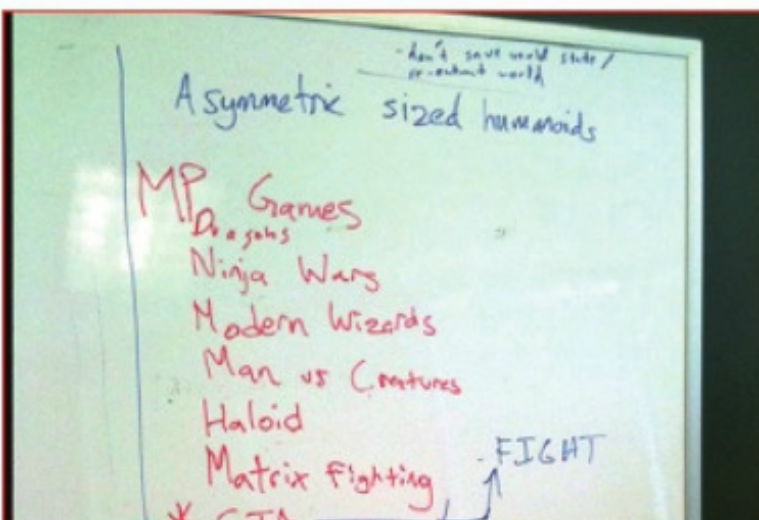 - don't save world state /
re-submit world
Asymmetric sized humanoids
MP Games
Dragons
Ninja Wars
Modern Wizards
Man vs Creatures
Haloid
Matrix Fighting
- FIGHT
* GTA